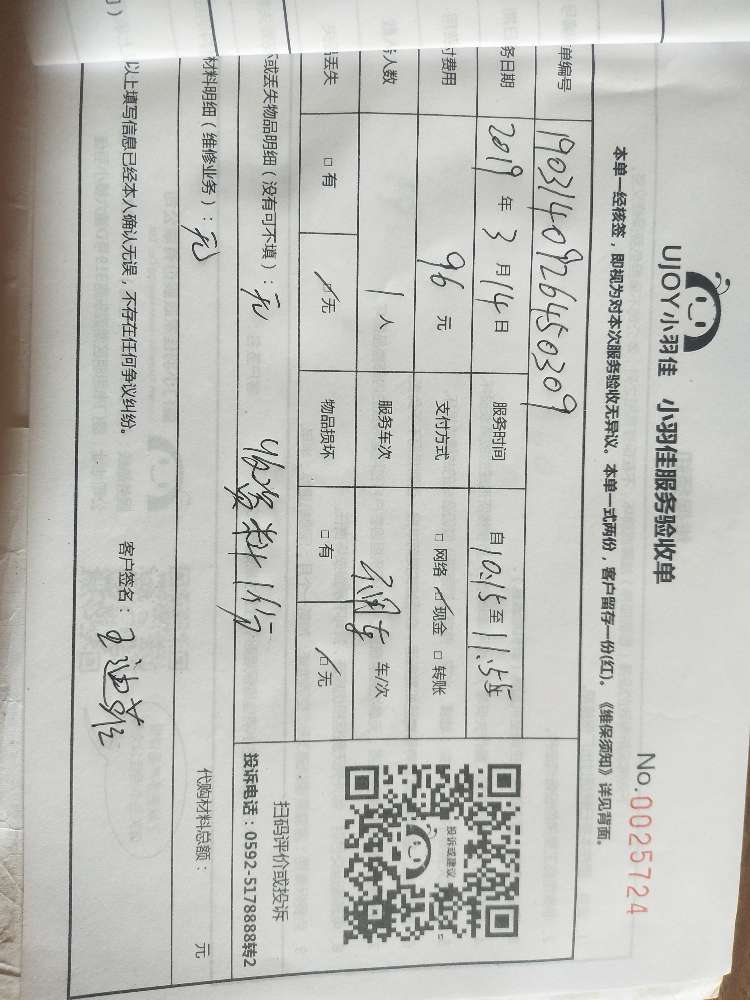 UJOY小羽佳 小羽佳服务验收单
No.0025724
本单一经核签，即视为对本次服务验收无异议。本单一式两份，客户留存一份(红)。《维保须知》详见背面。
单编号 1903140926450309
务日期 2019 年 3 月 14 日 服务时间 自 10:15 至 11:55
付费用 96 元 支付方式 □ 网络 □ 现金 □ 转账
人数 1 人 服务车次 车/次
丢失 □ 有 □ 无 物品损坏 □ 有 □ 无
坏或丢失物品明细（没有可不填）：无
收资料1份
投诉或建议
扫码评价或投诉
投诉电话：0592-5178888转2
材料明细（维修业务）：无 代购材料总额： 元
以上填写信息已经本人确认无误，不存在任何争议纠纷。 客户签名：